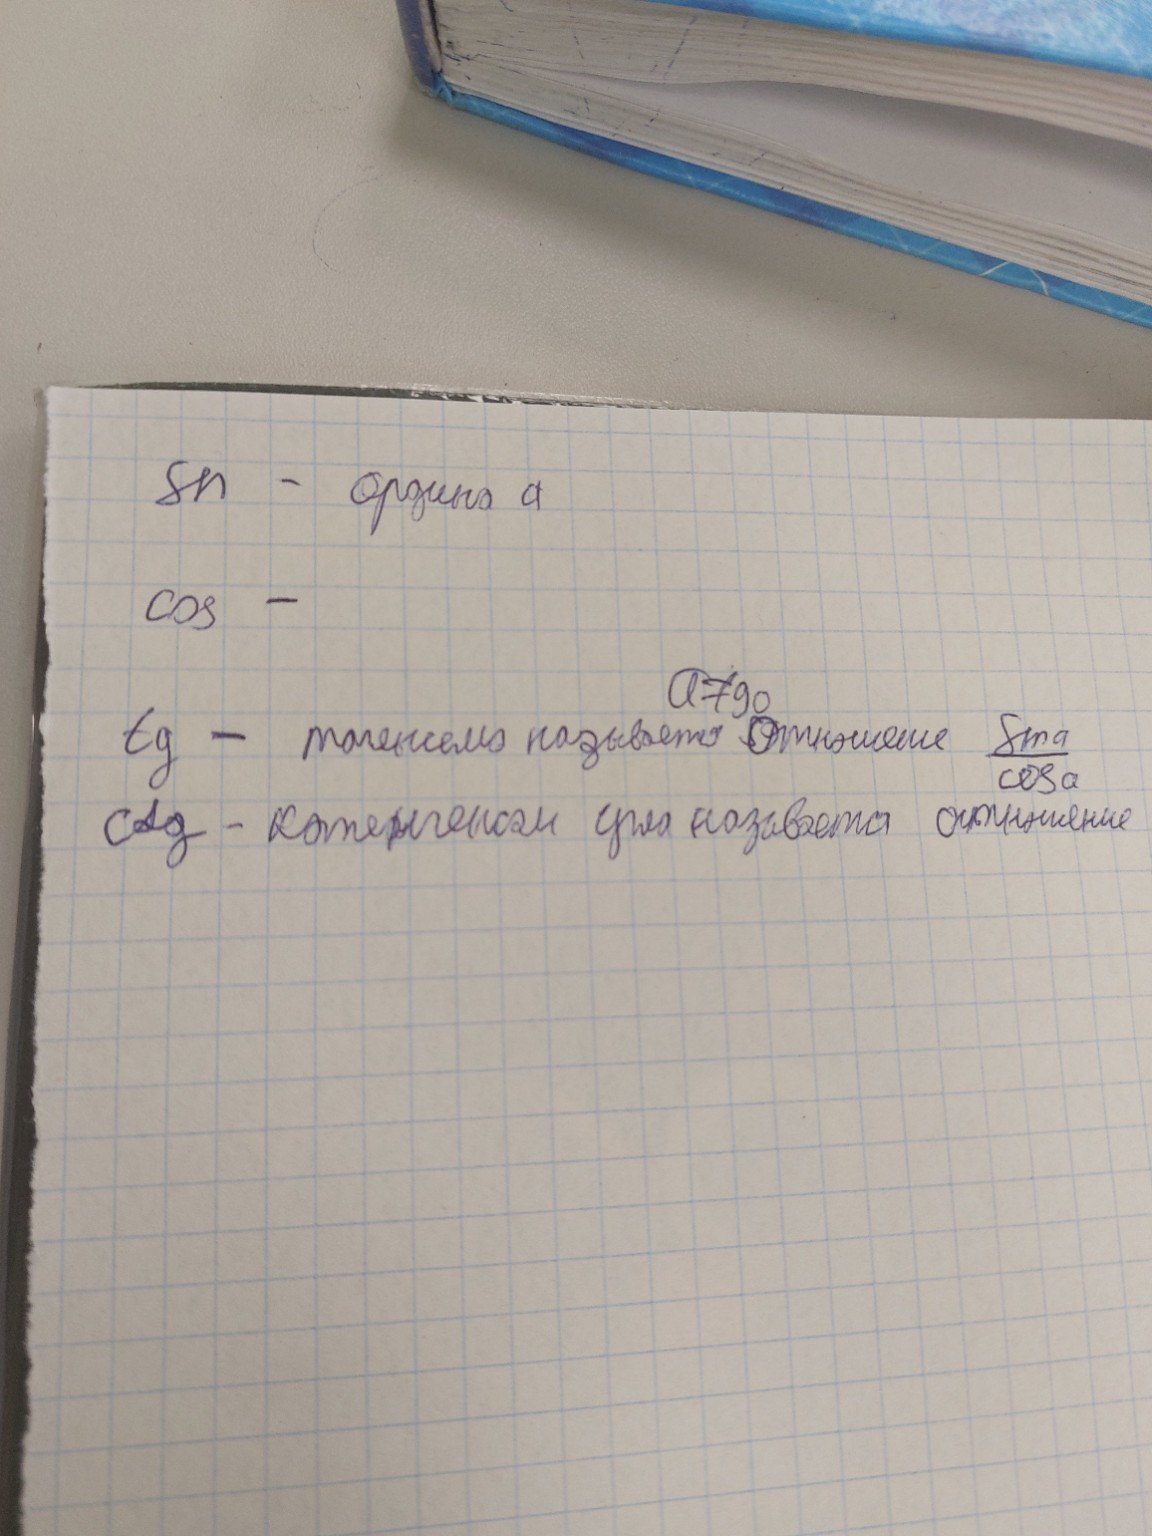 Sin - ордина a
cos -
a≠90
tg - тангенсема называета отношение sina/cosa
ctg - котенгенсам угла называета отнношение